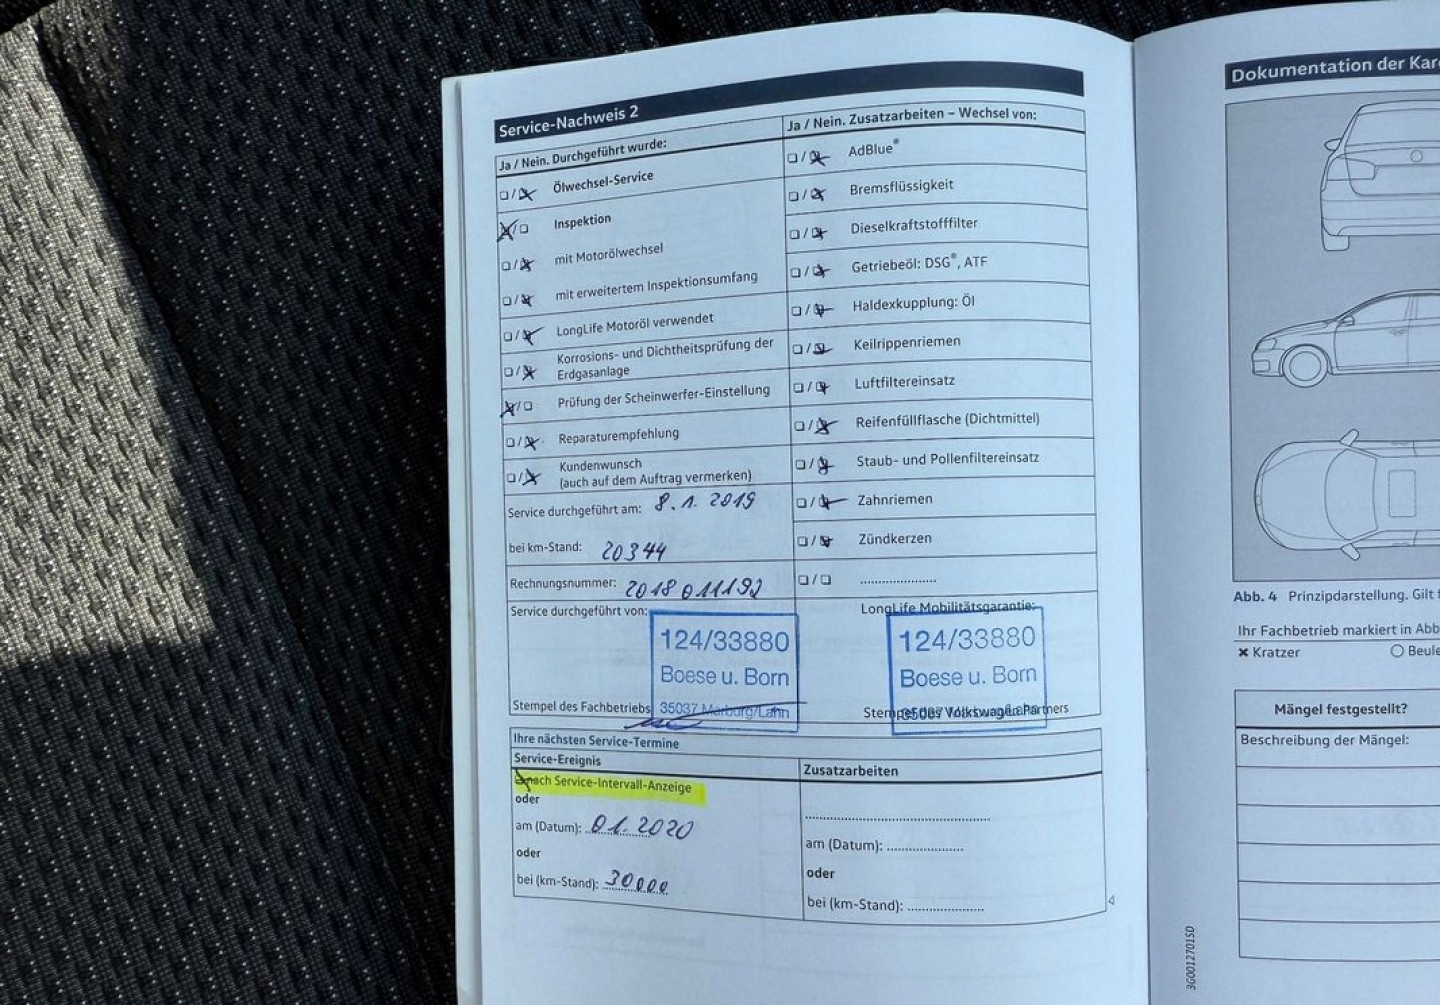 Service-Nachweis 2
Ja / Nein. Durchgeführt wurde:
Ölwechsel-Service
Inspektion
mit Motorölwechsel
mit erweitertem Inspektionsumfang
LongLife Motoröl verwendet
Korrosions- und Dichtheitsprüfung der
Erdgasanlage
Prüfung der Scheinwerfer-Einstellung
Reparaturempfehlung
Kundenwunsch
(auch auf dem Auftrag vermerken)
Service durchgeführt am: 8.1.2019
bei km-Stand: 20344
Rechnungsnummer: 2018011192
Ja / Nein. Zusatzarbeiten – Wechsel von:
AdBlue®
Bremsflüssigkeit
Dieselkraftstofffilter
Getriebeöl: DSG®, ATF
Haldexkupplung: Öl
Keilrippenriemen
Luftfiltereinsatz
Reifenfüllflasche (Dichtmittel)
Staub- und Pollenfiltereinsatz
Zahnriemen
Zündkerzen
....................
Service durchgeführt von:
124/33880
Boese u. Born
35037 Marburg/Lahn
Stempel des Fachbetriebs
LongLife Mobilitätsgarantie:
124/33880
Boese u. Born
Stempel des Volkswagen Partners
Ihre nächsten Service-Termine
Service-Ereignis
nach Service-Intervall-Anzeige
oder
am (Datum): 01.2020
oder
bei (km-Stand): 30000
Zusatzarbeiten
am (Datum): ....................
oder
bei (km-Stand): ....................
Dokumentation der
Abb. 4 Prinzipdarstellung. Gilt
Ihr Fachbetrieb markiert in Abb
Kratzer
Beule
Mängel festgestellt?
Beschreibung der Mängel:
3G0012701SD